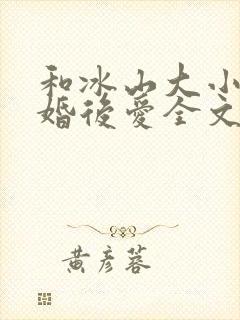 和冰山大小
婚後愛全文
黃彥蓉